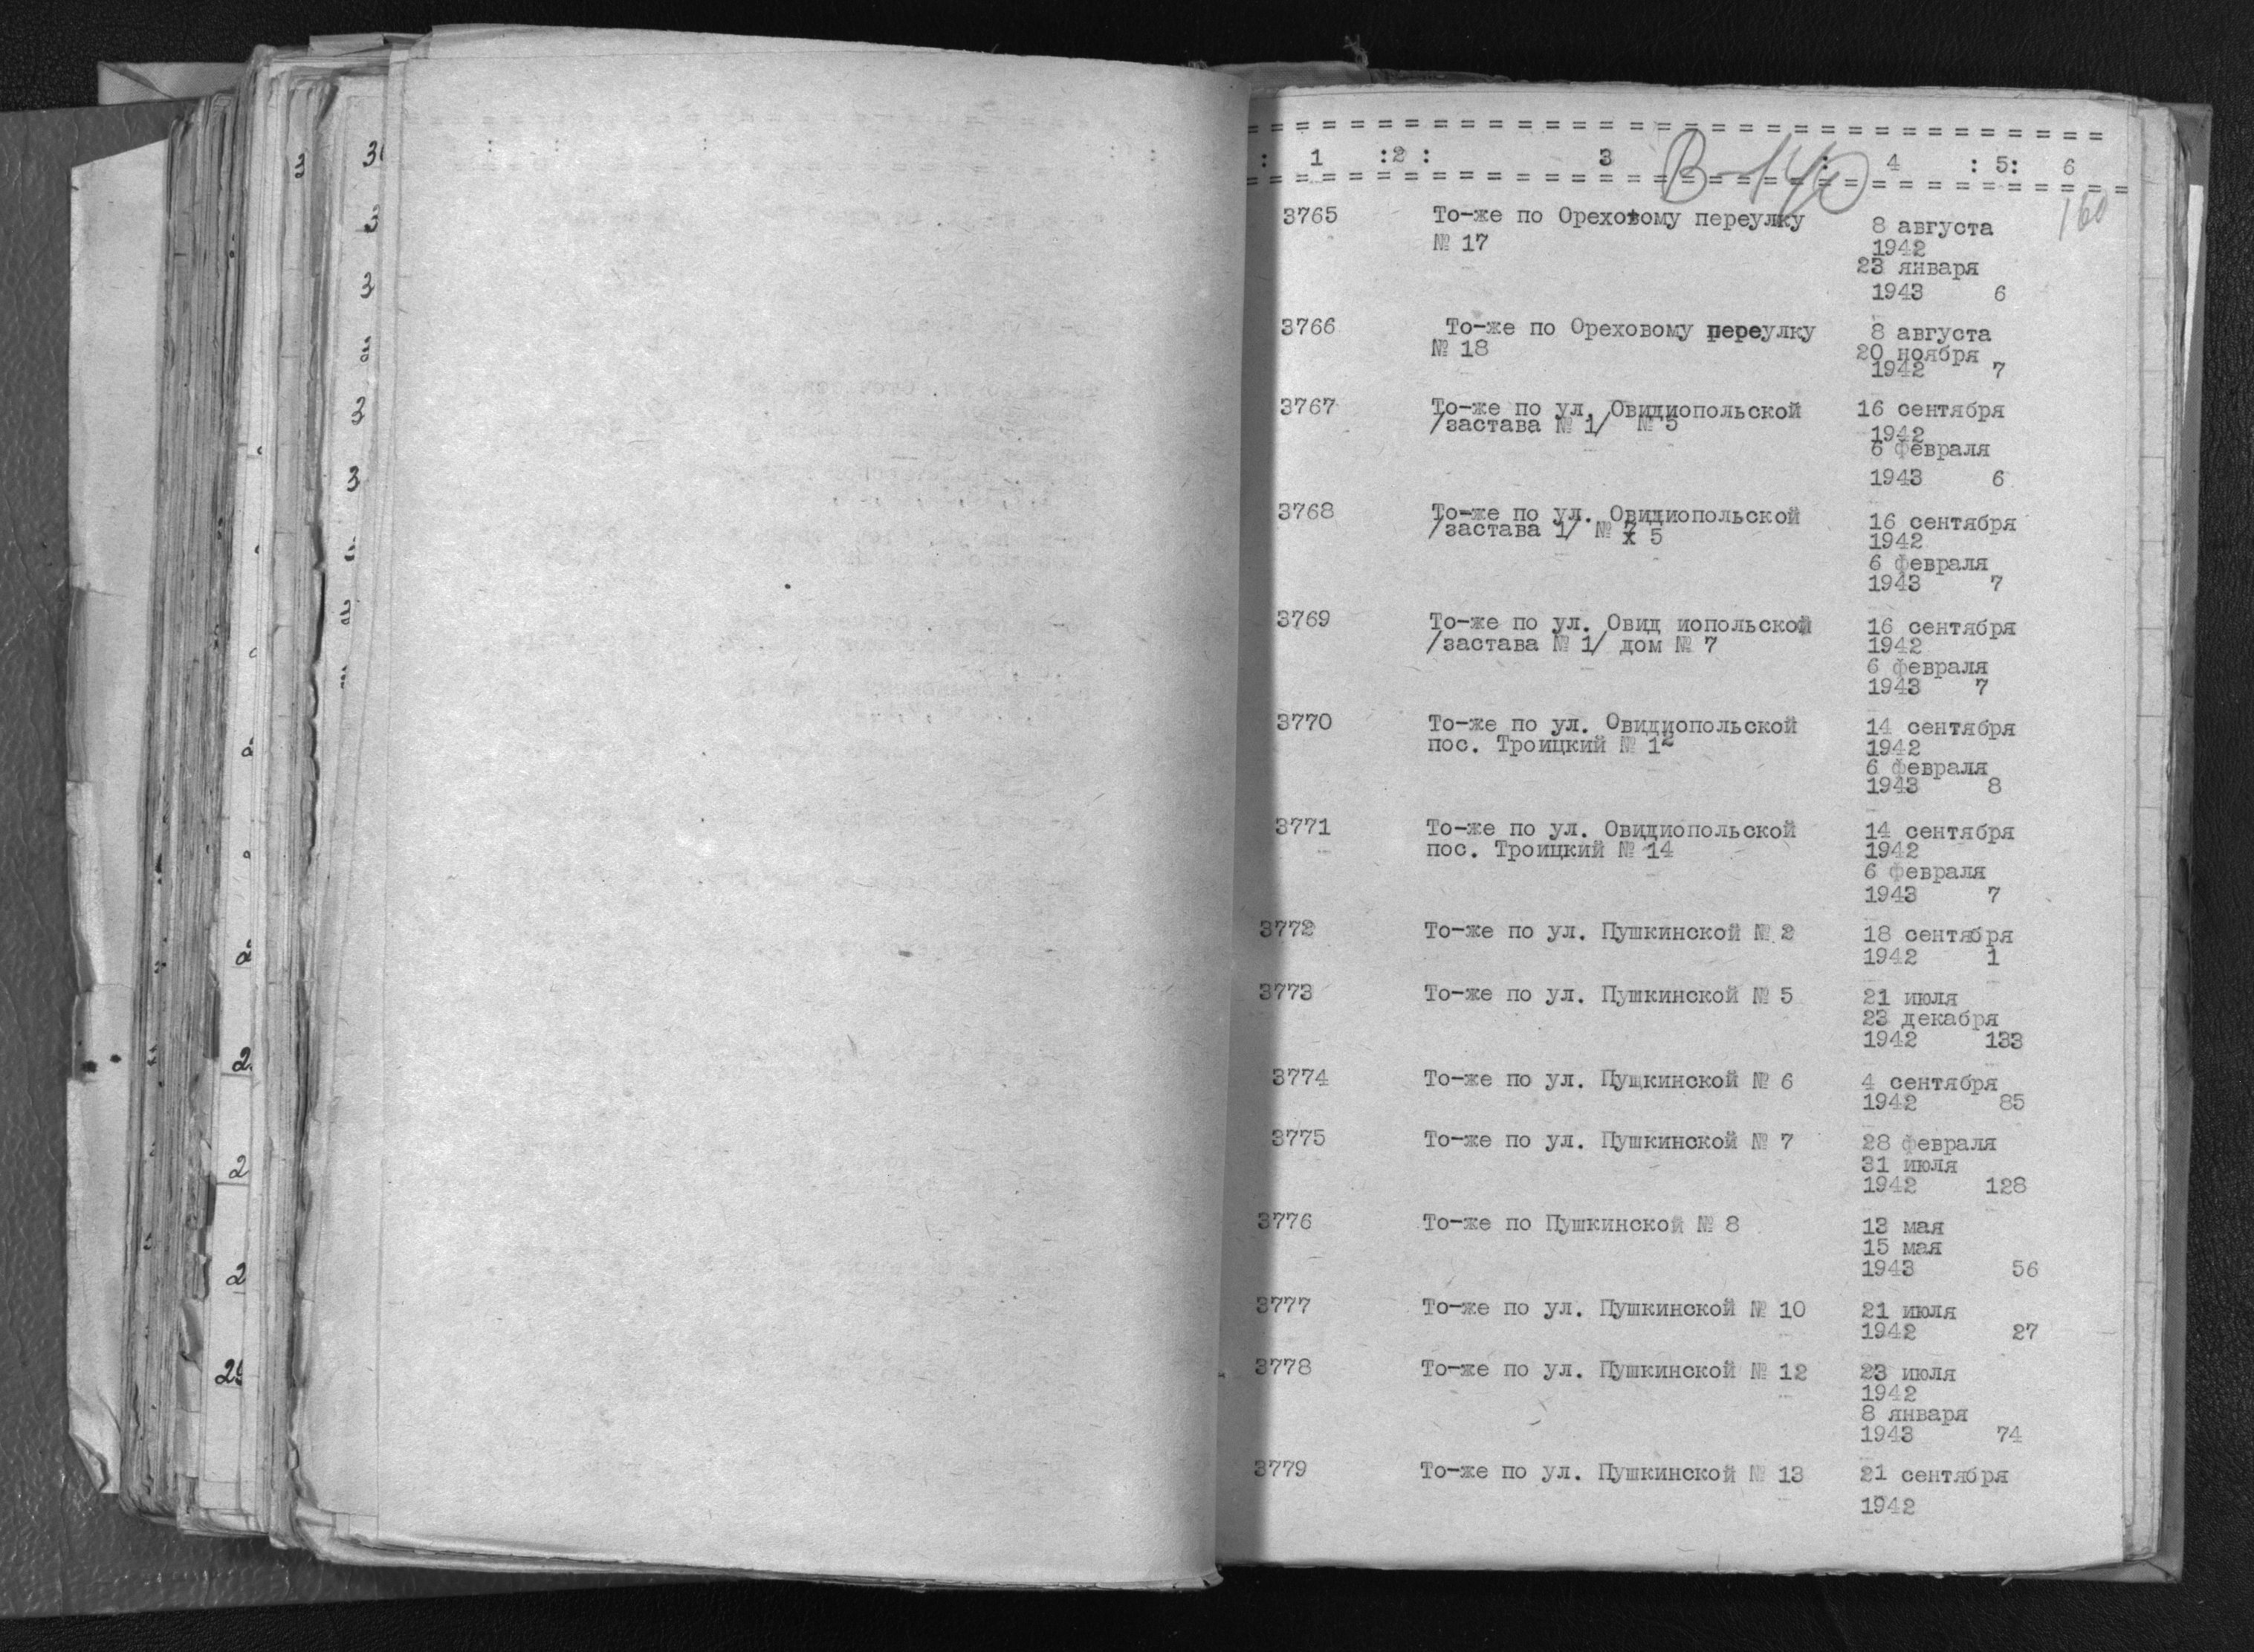 : 1 :2 : 3 : 4 : 5: 6
В-140
160
3765 То-же по Ореховому переулку 8 августа
№ 17 1942
23 января
1943 6
3766 То-же по Ореховому переулку 8 августа
№ 18 20 ноября
1942 7
3767 То-же по ул. Овидиопольской 16 сентября
/застава № 1/ № 5 1942
6 февраля
1943 6
3768 То-же по ул. Овидиопольской 16 сентября
/застава 1/ № х 5 1942
6 февраля
1943 7
3769 То-же по ул. Овид иопольской 16 сентября
/застава № 1/ дом № 7 1942
6 февраля
1943 7
3770 То-же по ул. Овидиопольской 14 сентября
пос. Троицкий № 12 1942
6 февраля
1943 8
3771 То-же по ул. Овидиопольской 14 сентября
пос. Троицкий № 14 1942
6 февраля
1943 7
3772 То-же по ул. Пушкинской № 2 18 сентября
1942 1
3773 То-же по ул. Пушкинской № 5 21 июля
23 декабря
1942 133
3774 То-же по ул. Пущкинской № 6 4 сентября
1942 85
3775 То-же по ул. Пушкинской № 7 28 февраля
31 июля
1942 128
3776 То-же по Пушкинской № 8 13 мая
15 мая
1943 56
3777 То-же по ул. Пушкинской № 10 21 июля
1942 27
3778 То-же по ул. Пушкинской № 12 23 июля
1942
8 января
1943 74
3779 То-же по ул. Пушкинской № 13 21 сентября
1942